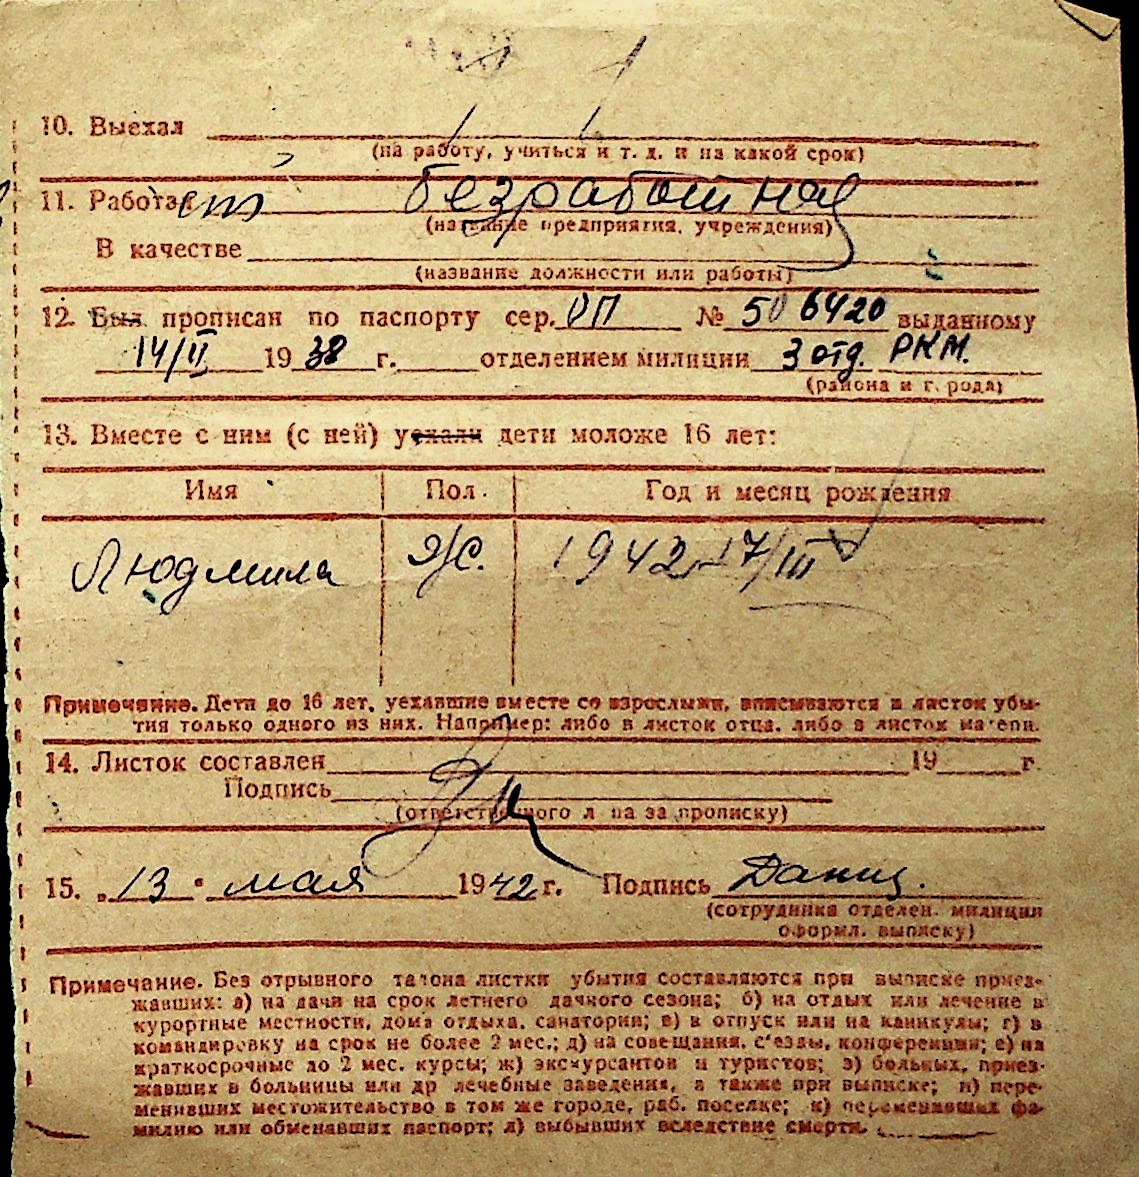 10. Выехал
(на работу, учиться и т. д. и на какой срок)
11. Работает безработная
(название предприятия, учреждения)
В качестве
(название должности или работы)
12. Был прописан по паспорту сер. ОП № 506420 выданному
14/II 1938 г. отделением милиции 3 отд. РКМ.
(района и города)
13. Вместе с ним (с ней) уехали дети моложе 16 лет:
Имя Пол. Год и месяц рождения
Людмила ж. 1942 17/III
Примечание. Дети до 16 лет, уехавшие вместе со взрослыми, вписываются в листок убы-
тия только одного из них. Например: либо в листок отца, либо в листок матери.
14. Листок составлен 19 г.
Подпись
(ответственного лица за прописку)
15. „13" мая 1942 г. Подпись
(сотрудника отделен. милиции
оформл. выписку)
Примечание. Без отрывного талона листки убытия составляются при выписке приез-
жавших: а) на дачи на срок летнего дачного сезона; б) на отдых или лечение в
курортные местности, дома отдыха, санатории; в) в отпуск или на каникулы; г) в
командировку на срок не более 2 мес.; д) на совещания, с'езды, конференции; е) на
краткосрочные до 2 мес. курсы; ж) экскурсантов и туристов; з) больных, приез-
жавших в больницы или др лечебные заведения, а также при выписке; и) пере-
менивших местожительство в том же городе, раб. поселке; к) переменивших фа-
милию или обменавших паспорт; л) выбывших вследствие смерти.